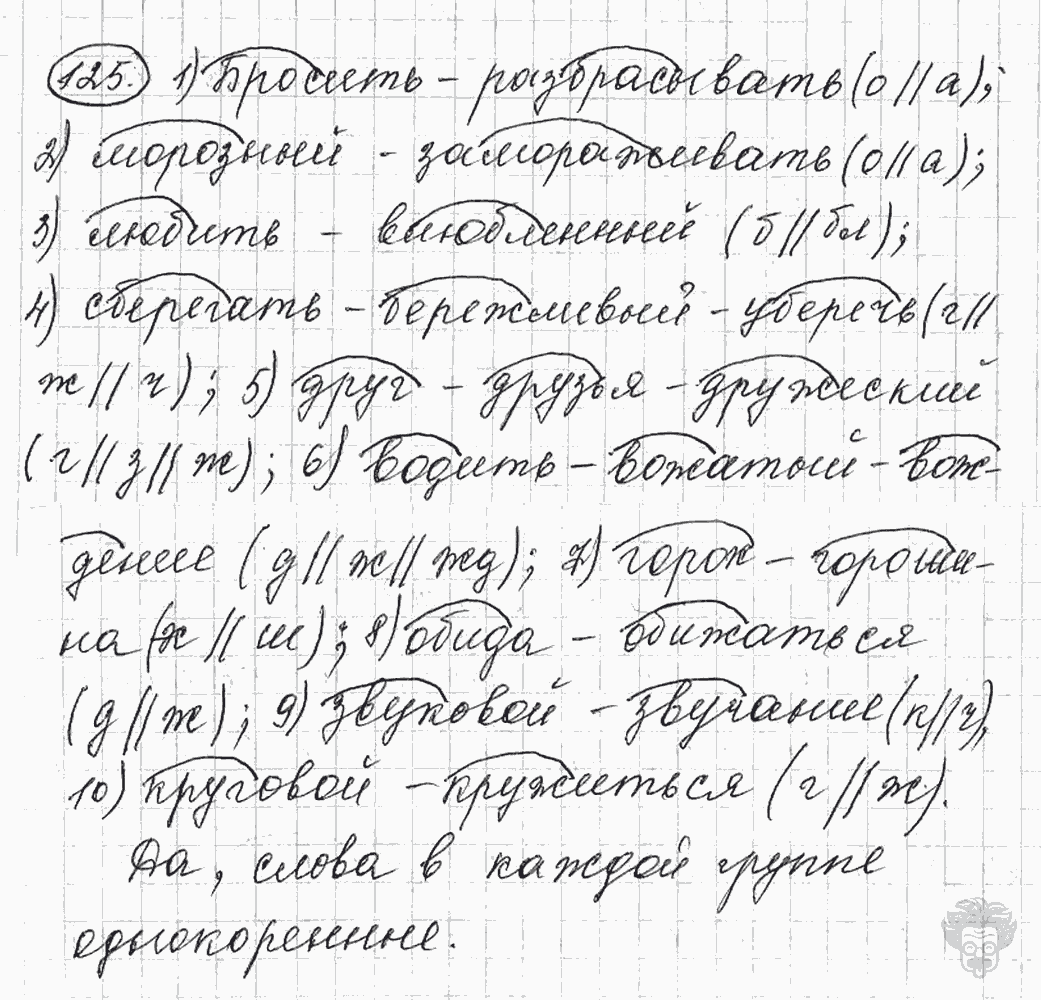 125. 1) Бросить – разбрасывать (о // а);
2) морозный – замораживать (о // а);
3) любить – влюбленный (б // бл);
4) сберегать – бережливый – уберечь (г //
ж // ч); 5) друг – друзья – дружеский
(г // з // ж); 6) водить – вожатый – вож-
дение (д // ж // жд); 7) горох – гороши-
на (х // ш); 8) обида – обижаться
(д // ж); 9) звуковой – звучание (к // ч),
10) круговой – кружиться (г // ж).
Да, слова в каждой группе
однокоренные.